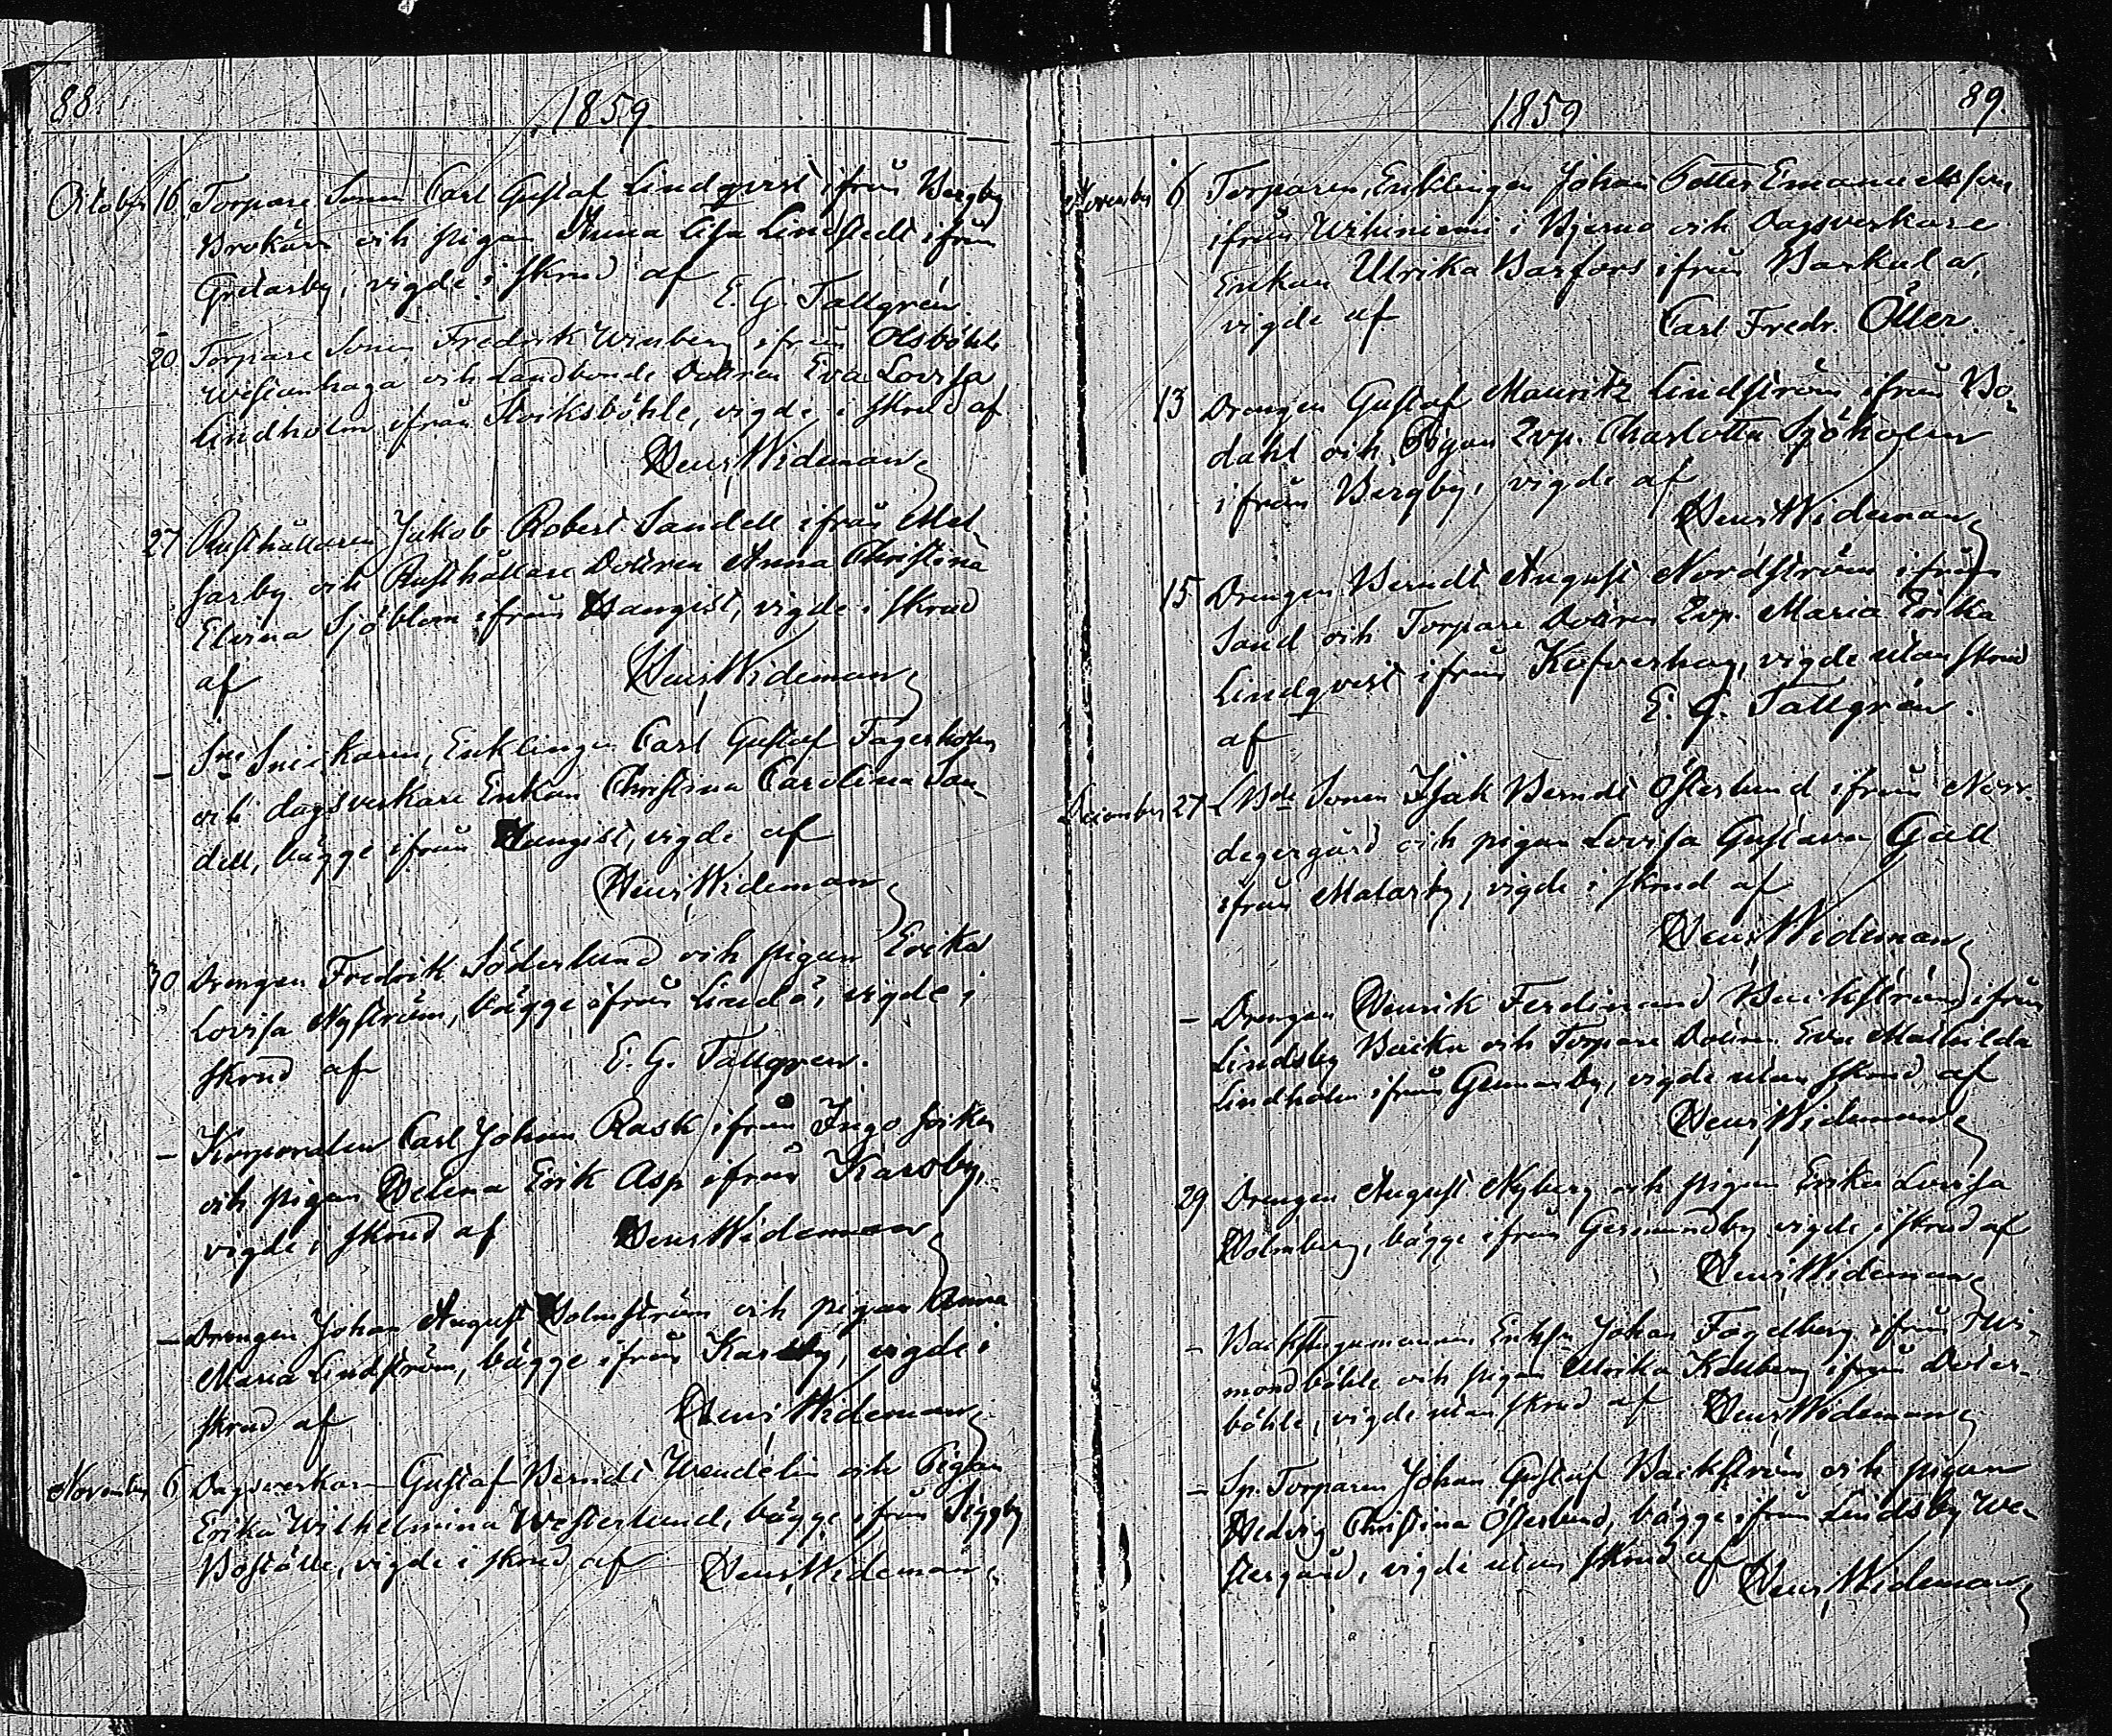 88.
1859
October 16 Torpare Sonen Carl Gustaf Lindqvist ifrån Bergby
Brokärr och pigan Anna Lisa Lindstedt ifrån
Gretarby, vigde i skrud af
E. G. Tallgrén
20 Torpare Sonen Fredrik Winberg ifrån Olsböhle
Westanhaga och Landbonde Dottren Eva Lovisa
Lindholm ifrån Skriksböhle, vigde i skrud af
Henr. Wideman
27 Rusthållaren Jakob Robert Sandell ifrån Mel-
sarby och Rusthållare Dottren Anna Christina
Elvina Sjöblom ifrån Hangist, vigde i skrud
af
Henr. Wideman
– Sne Snickaren, Enklingen Carl Gustaf Fagerholm
och dagsverkare Enkan Christina Carolina San-
dell, bägge ifrån Hangist, vigde af
Henr. Wideman
30 Drengen Fredrik Söderlund och pigan Erika
Lovisa Nyström, bägge ifrån Lindö, vigde i
skrud af
E. G. Tallgren.
– Korporalen Carl Johan Rask ifrån Ingo socken
och pigan Helena Erik Asp ifrån Karsby,
vigde i skrud af
Henr. Wideman
– Drengen Johan August Holmström och pigan Anna
Maria Lindström, bägge ifrån Karsby, vigde i
skrud af
Henr. Wideman
November 6 Dagsverkaren Gustaf Berndt Wendelin och Pigan
Erika Wilhelmina Westerlund, bägge ifrån Siggby
Boställe, vigde i skrud af
Henr. Wideman
1859
89.
November 6 Torparen, Enklingen Johan Petter Emanuelsson
ifrån Wihiniemi i Bjerno och Dagsverkare
Enkan Ulrika Barfors ifrån Barkula,
vigde af
Carl Fredr. Öller.
13 Drengen Gustaf Mauritz Lindström ifrån Bo-
dahl och Pigan Qvp. Charlotta Sjöholm
ifrån Bergby, vigde af
Henr. Wideman
15 Drengen Berndt August Nordström ifrån
Sand och Torpare Dottren Qvp. Maria Erika
Lindqvist ifrån Kufverhag, vigde utan skrud
af
E. G. Tallgrén.
December 27 LBde Sonen Isak Berndt Österlund ifrån Norr-
degergård och pigan Lovisa Gustava Gall
ifrån Matarby, vigde i skrud af
Henr. Wideman
– Drengen Henrik Ferdinand Backström ifrån
Lindsby Backa och Torpare Dottren Eva Mathilda
Lindholm ifrån Gunnarby, vigde utan skrud af
Henr. Wideman
29 Drengen August Nyberg och pigan Erika Lovisa
Holmberg, bägge ifrån Germundby vigde i skrud af
Henr. Wideman
– Backstugumannen Enkln Johan Fagelberg ifrån
mondböhle och pigan Ulrika Kellberg ifrån Doter-
böhle, vigde utan skrud af
Henr. Wideman
– Sp. Torparen Johan Gustaf Backström och pigan
Hedvig Christina Österlund, bägge ifrån Lindsby We-
stergård, vigde utan skrud af
Henr. Wideman